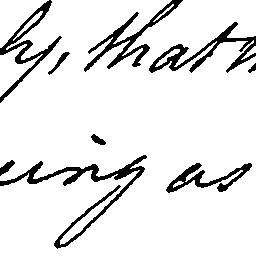 ly, that
eing as